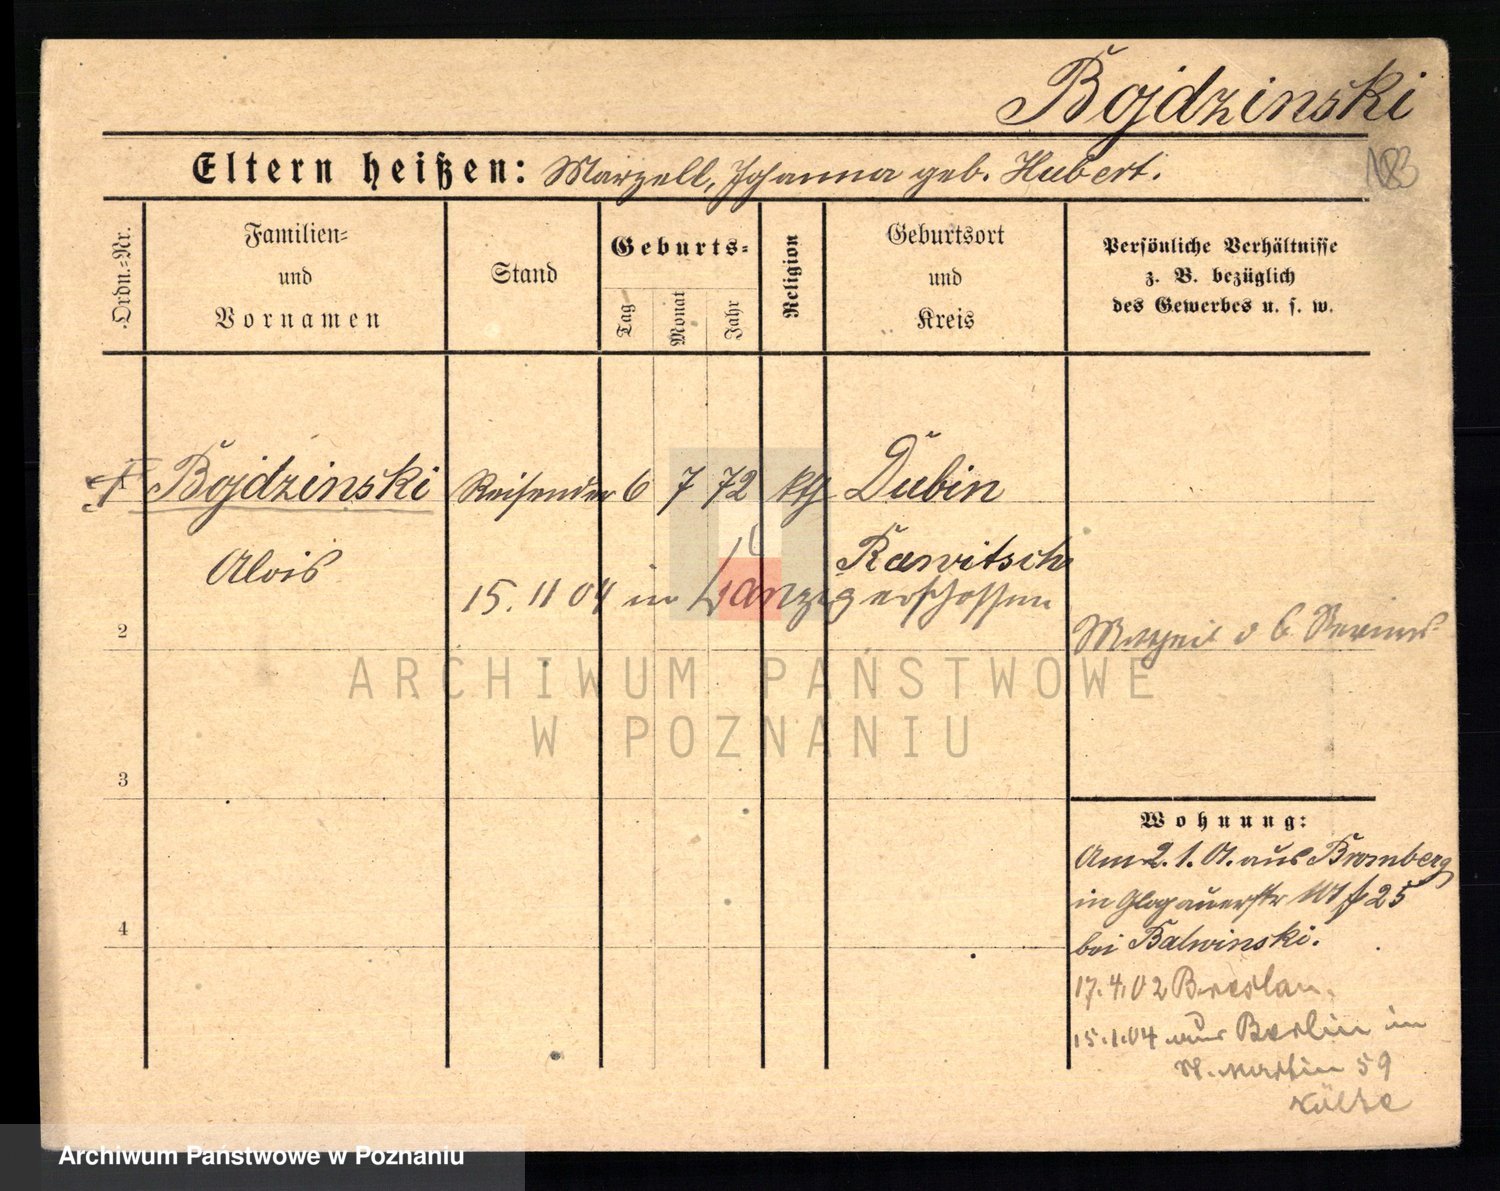 Bojdzinski
Eltern heißen: Marzell, Johanna geb. Hubert.
183
Ordn.-Nr.
Familien-
und
Vornamen
Stand
Geburts-
Tag
Monat
Jahr
Religion
Geburtsort
und
Kreis
Persönliche Verhältnisse
z. B. bezüglich
des Gewerbes u. s. w.
† Bojdzinski Reisender 6 7 72 kth Dubin
Alois Rawitsch
15. 11 04 in Danzig erschossen
2
3
4
Wohnung:
Am 2. 1. 01. aus Bromberg
in Glogauerstr 25
bei Balwinski.
17. 4. 02 Breslau.
15. 1. 04 aus Berlin in
St. Martin 59
ARCHIWUM PAŃSTWOWE
W POZNANIU
Archiwum Państwowe w Poznaniu